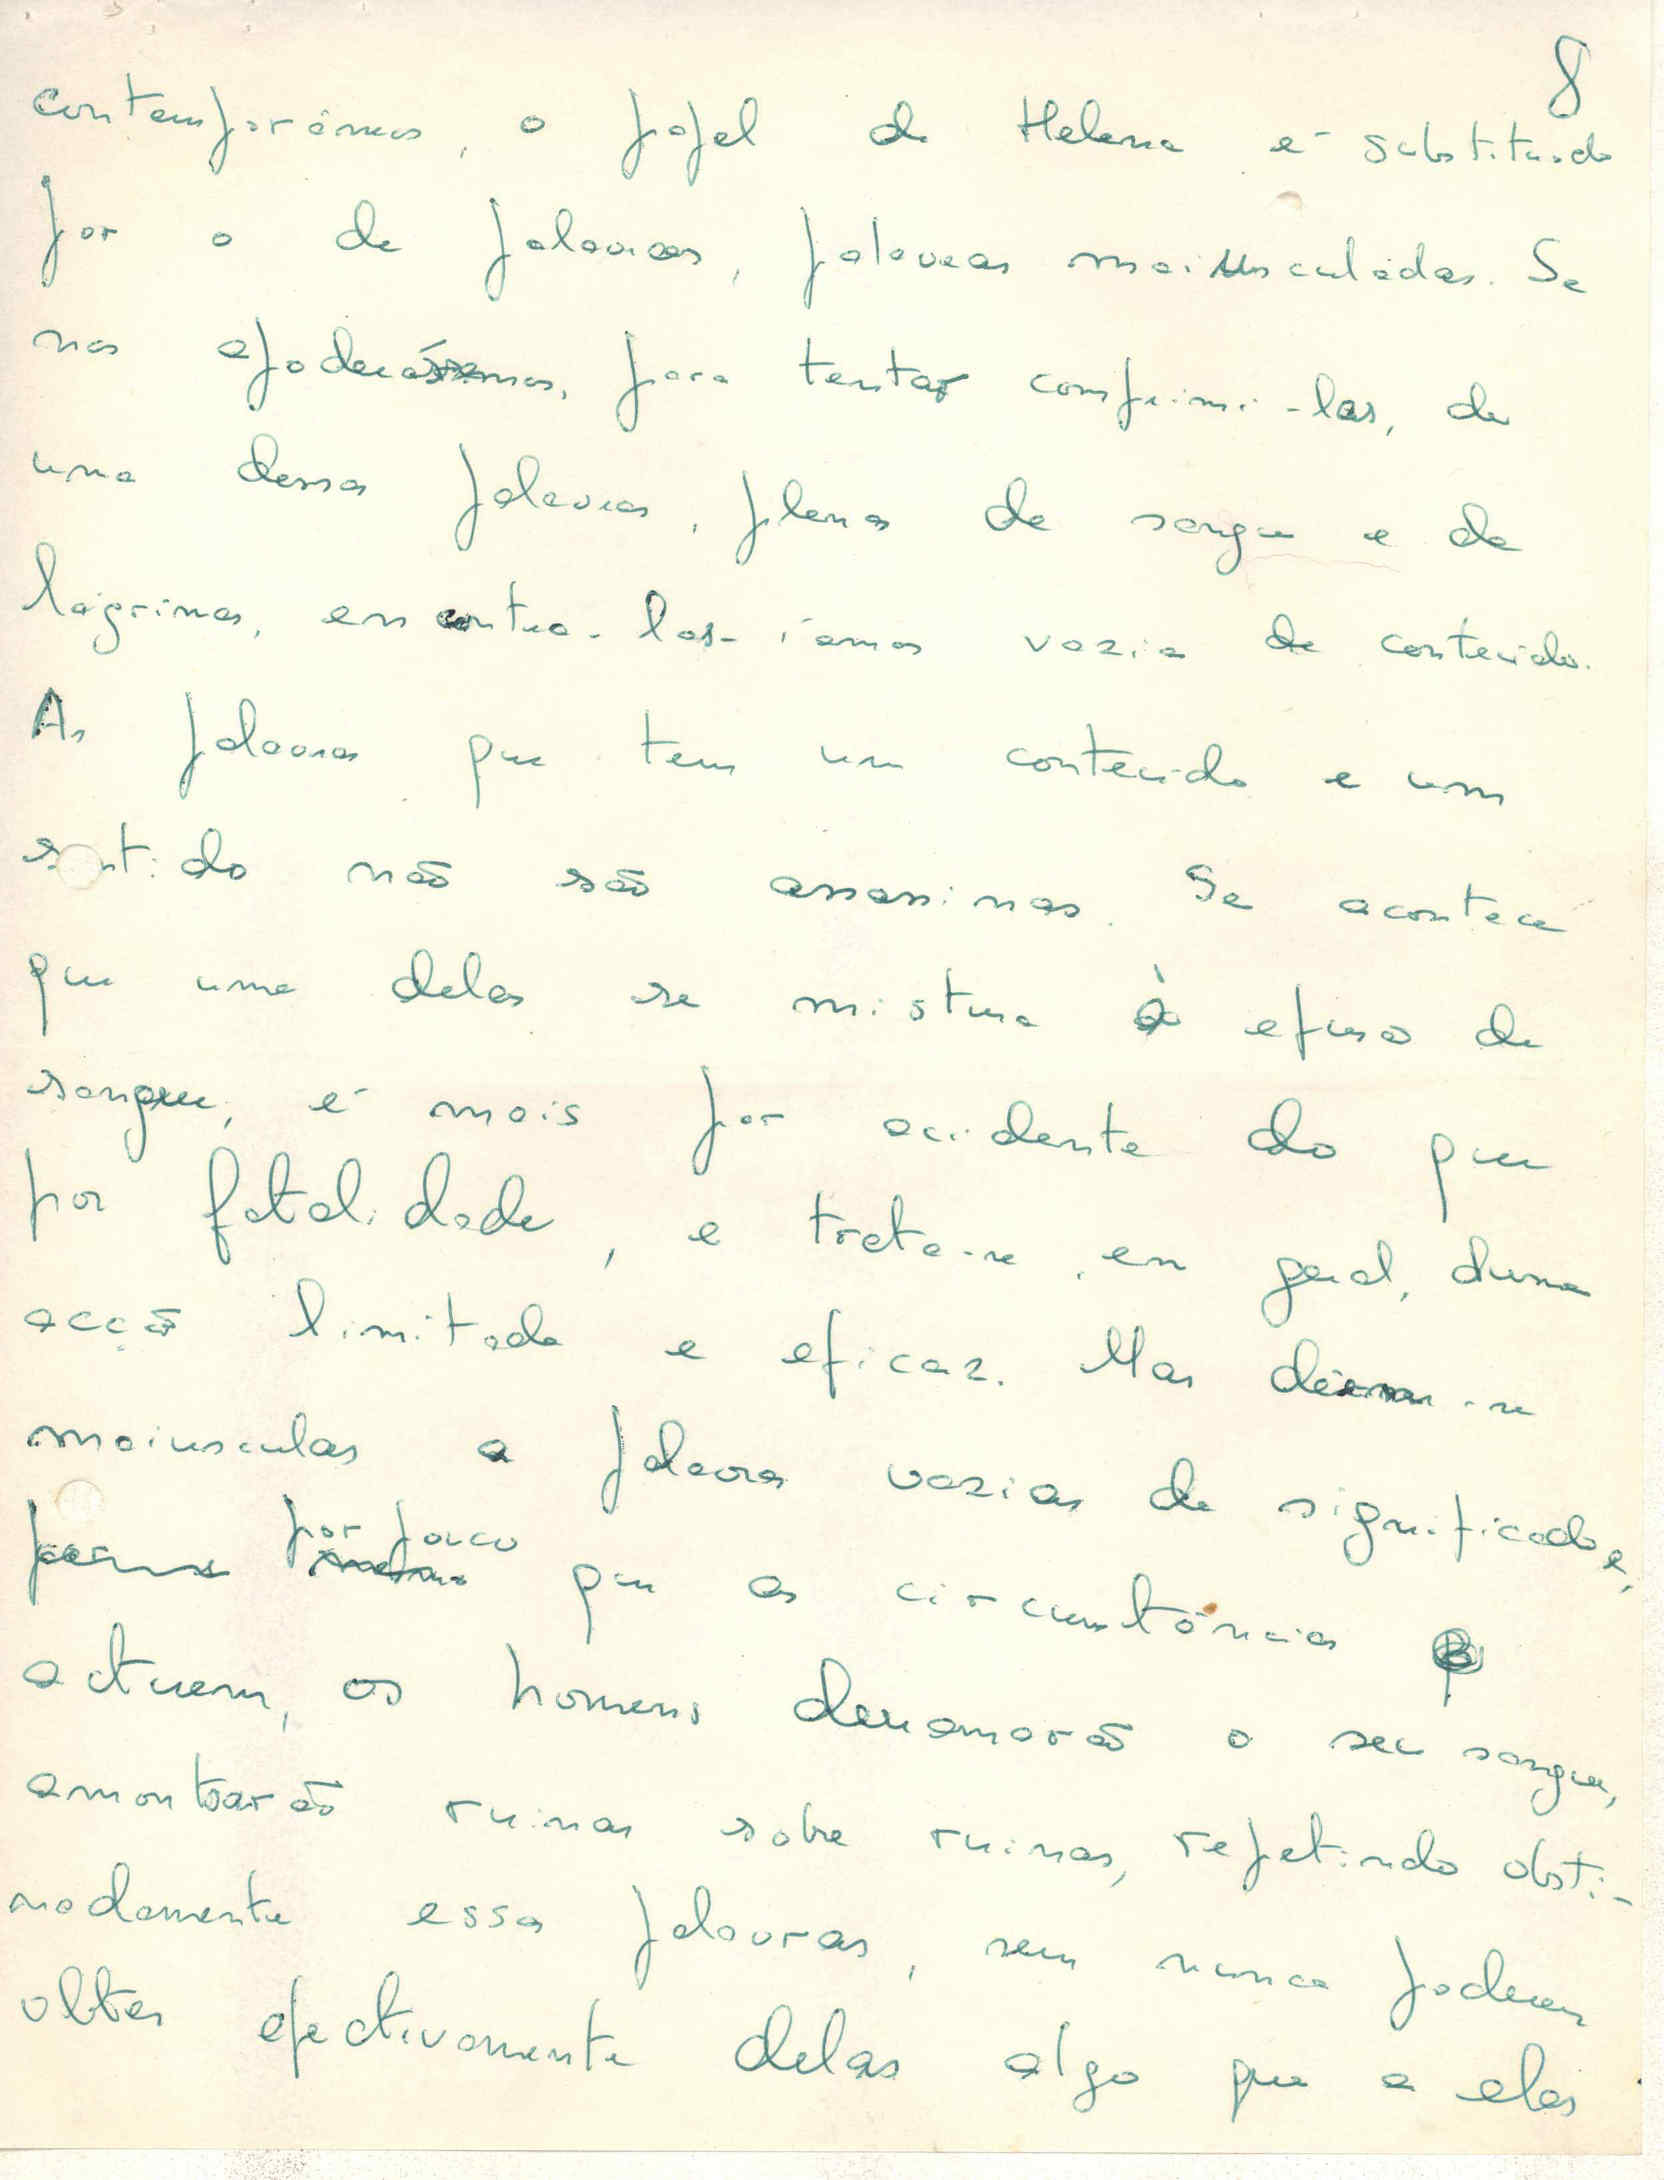 8
contemporâneos, o papel de Helena é substituido
por o de palavras, palavras maiusculadas. Se
nos apoderássemos, para tentar comprimi-las, de
uma dessas palavras, plenas de sangue e de
lágrimas, encontra-las-íamos vazia de conteúdo.
As palavras que tem um conteúdo e um
sentido não são assassinas. Se acontece
que uma delas se mistura à efusão de
sangue, é mais por acidente do que
por fatalidade, e trata-se, em geral, duma
acção limitada e eficaz. Mas dêem-se
maiusculas a palavras vazias de significado e,
por pouco
que as circunstâncias
actuem, os homens derramarão o seu sangue,
amontoarão ruinas sobre ruinas, repetindo obsti-
nadamente essas palavras, sem nunca poderem
obter efectivamente delas algo que a elas